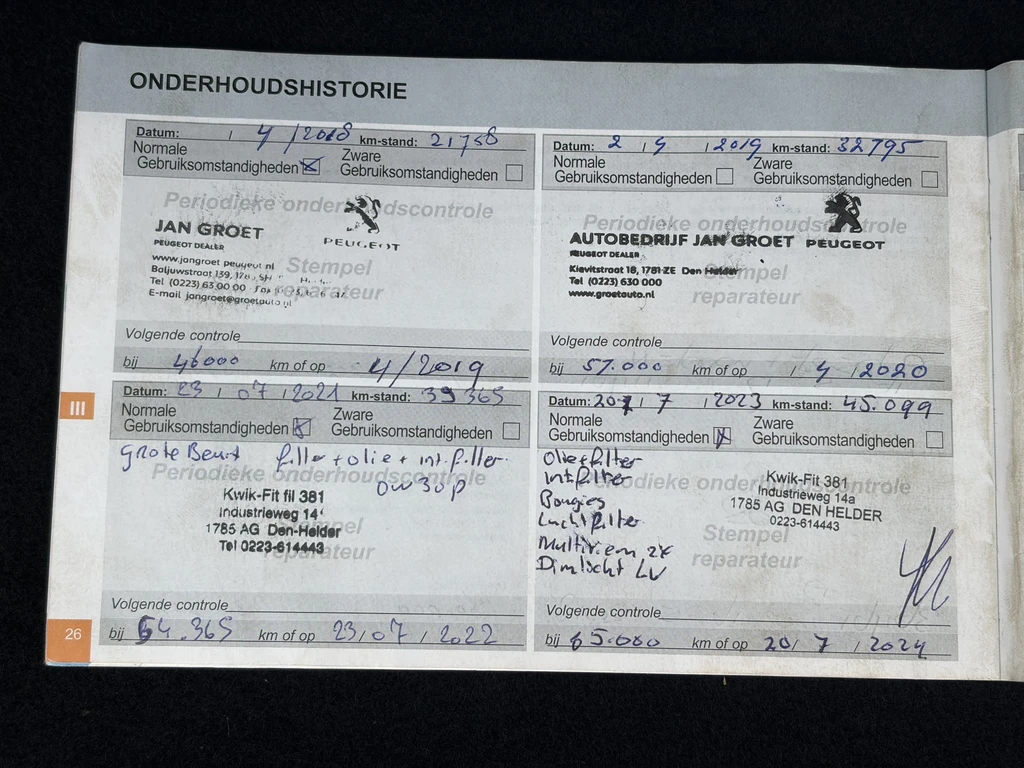 ONDERHOUDSHISTORIE
Datum: / 4 / 2018 km-stand: 21758
Normale Gebruiksomstandigheden Zware Gebruiksomstandigheden
Periodieke onderhoudscontrole
JAN GROET PEUGEOT
PEUGEOT DEALER
www.jangroet peugeot nl
Stempel
Baljuwstraat 139,
Tel (0223) 63 00 00
reparateur
E-mail jangroet@groetauto.nl
Volgende controle
bij 46000 km of op 4/2019
Datum: 2 / 4 / 2019 km-stand: 32795
Normale Gebruiksomstandigheden Zware Gebruiksomstandigheden
Periodieke onderhoudscontrole
AUTOBEDRIJF JAN GROET PEUGEOT
PEUGEOT DEALER
Kievitstraat 18, 1781 ZE Den Helder
Stempel
Tel (0223) 630 000
www.groetauto.nl
reparateur
Volgende controle
bij 57.000 km of op / 4 / 2020
III
Datum: 23 / 07 / 2021 km-stand: 39365
Normale Gebruiksomstandigheden Zware Gebruiksomstandigheden
grote Beurt filter + olie + int. filter.
Periodieke onderhoudscontrole
0W30P
Kwik-Fit fil 381
Industrieweg 14
1785 AG Den-Helder
Stempel
Tel 0223-614443
reparateur
Volgende controle
bij 54.365 km of op 23/07/2022
Datum: 20 / 7 / 2023 km-stand: 45.099
Normale Gebruiksomstandigheden Zware Gebruiksomstandigheden
Olie+filter
Int filter
Periodieke onderhoudscontrole
Bougies
Luchtfilter
Multiriem 2x
Dimlicht LV
Kwik-Fit 381
Industrieweg 14a
1785 AG DEN HELDER
0223-614443
Stempel
reparateur
Volgende controle
bij 65.000 km of op 20/ 7 / 2024
26